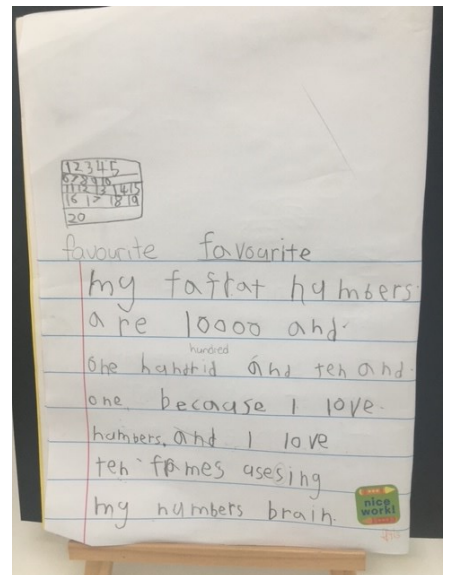 1 2 3 4 5
6 7 8 9 10
11 12 13 14 15
16 17 18 19
20
favourite favourite
my faftat numbers
are 10000 and
hundred
one handrid and ten and
one because I love
numbers, and I love
ten frames asesing
my numbers brain.
nice
work!